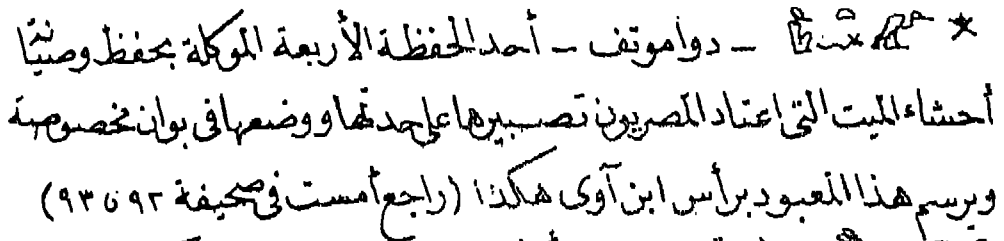 دواموتف – أحد الحفظة الأربعة الموكلة بحفظ وصيانة
أحشاء الميت التى اعتاد المصريون تصبيرها على حدتها ووضعها فى بوان مخصوصة
ويرسم هذا المعبود برأس ابن آوى هكذا (راجع أمست فى صحيفة ٩٢ و ٩٣)